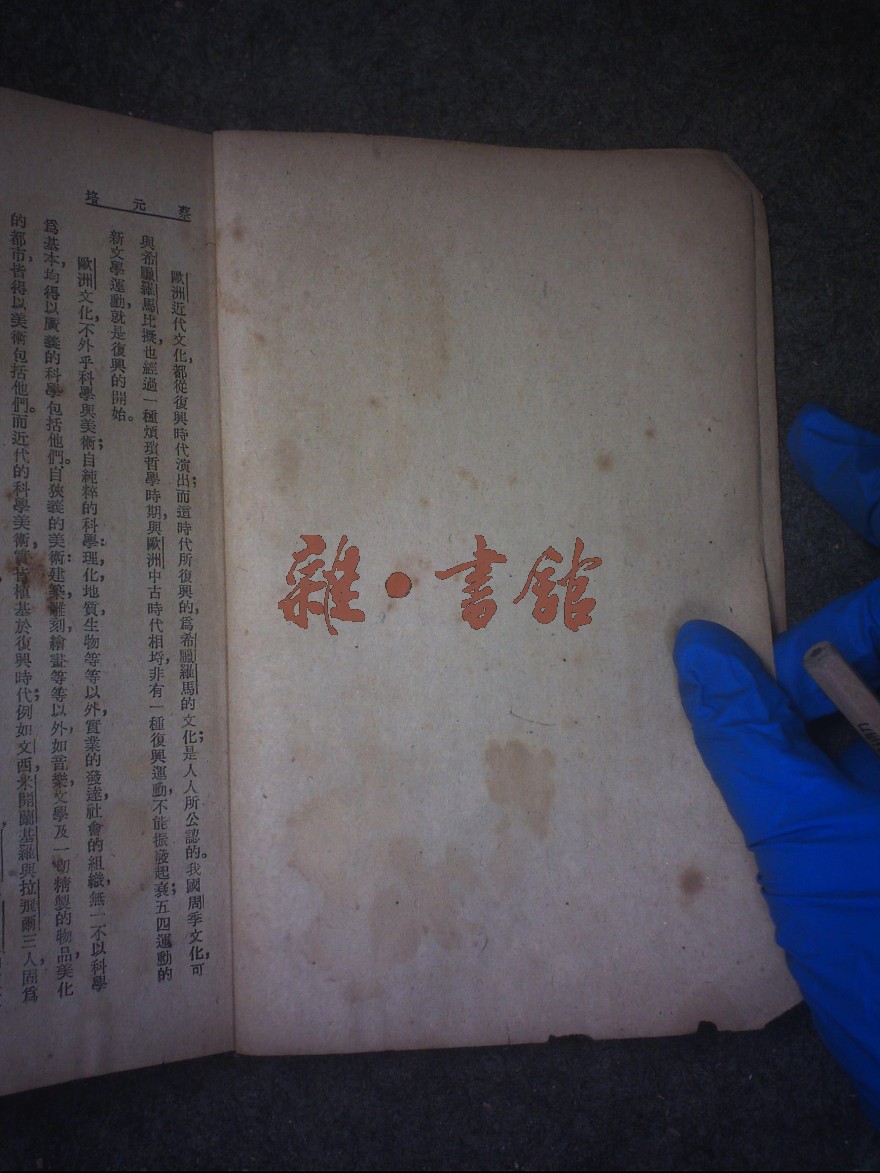 蔡元培
歐洲近代文化，都從復興時代演出；而這時代所復興的，爲希臘羅馬的文化；是人人所公認的。我國周季文化，可
與希臘羅馬比擬，也經過一種煩瑣哲學時期，與歐洲中古時代相埒，非有一種復興運動，不能振發起衰；五四運動的
新文學運動，就是復興的開始。
歐洲文化，不外乎科學與美術；自純粹的科學：理，化，地質，生物等等以外，實業的發達，社會的組織，無一不以科學
爲基本，均得以廣義的科學包括他們。自狹義的美術：建築，雕刻，繪畫等等以外，如音樂，文學及一切精製的物品，美化
的都市，皆得以美術包括他們。而近代的科學美術，實皆植基於復興時代；例如文西，米開蘭基羅與拉飛爾三人，固爲
雜·書館